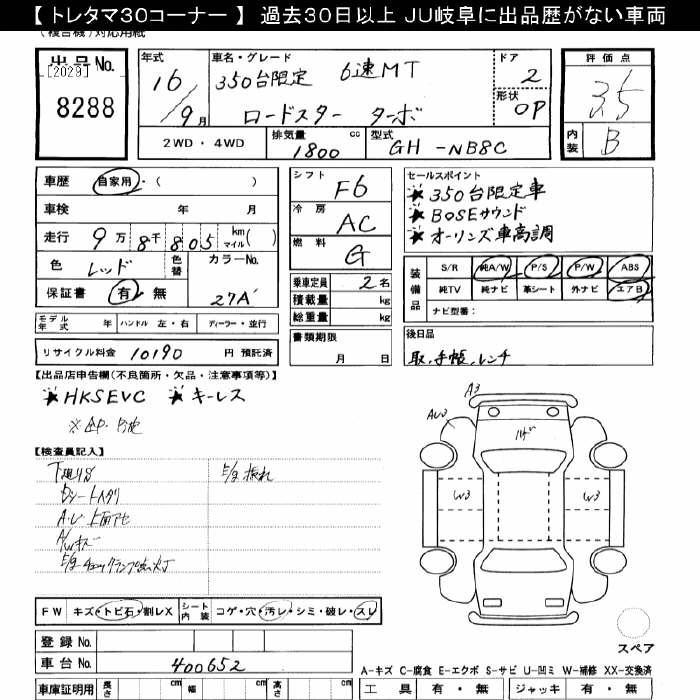 【 トレタマ30コーナー 】 過去30日以上 JU岐阜に出品歴がない車両
(複合機)対応用紙
出品No.
[2029]
8288
年式 車名・グレード ドア 評価点
16 350台限定 6速MT 2 3.5
9月 ロードスター ターボ 形状 OP
2WD・4WD 排気量 cc 型式 内装 B
1800 GH-NB8C
車歴 自家用・( )
車検 年 月
走行 9万 8千 805 km マイル( )
色 レッド 色替 カラーNo.
保証書 有・無 27A
シフト F6
冷房 AC
燃料 G
乗車定員 2名
積載量 kg
総重量 kg
書類期限
月 日
セールスポイント
★350台限定車
★BOSEサウンド
★オーリンズ車高調
装備品 S/R 純A/W P/S P/W ABS
純TV 純ナビ 革シート 外ナビ エアB
ナビ型番:
モデル年式 年 ハンドル 左・右 ディーラー・並行
リサイクル料金 10190 円 預託済
後日品
取、手帳、レンチ
【出品店申告欄(不良箇所・欠品・注意事項等)】
★HKSEVC ★キーレス
【検査員記入】
下廻りサビ
E/g振れ
Dシートヘタリ
A/Wキズ
A3
AW3
W3 W3
FW キズ・トビ石・割レX シート内装 コゲ・穴・汚レ・シミ・破レ・スレ
登録No.
車台No. 400652
スペア
A-キズ C-腐食 E-エクボ S-サビ U-凹ミ W-補修 XX-交換済
車庫証明用 長さ cm 幅 cm 高さ cm 工具 有・無 ジャッキ 有・無